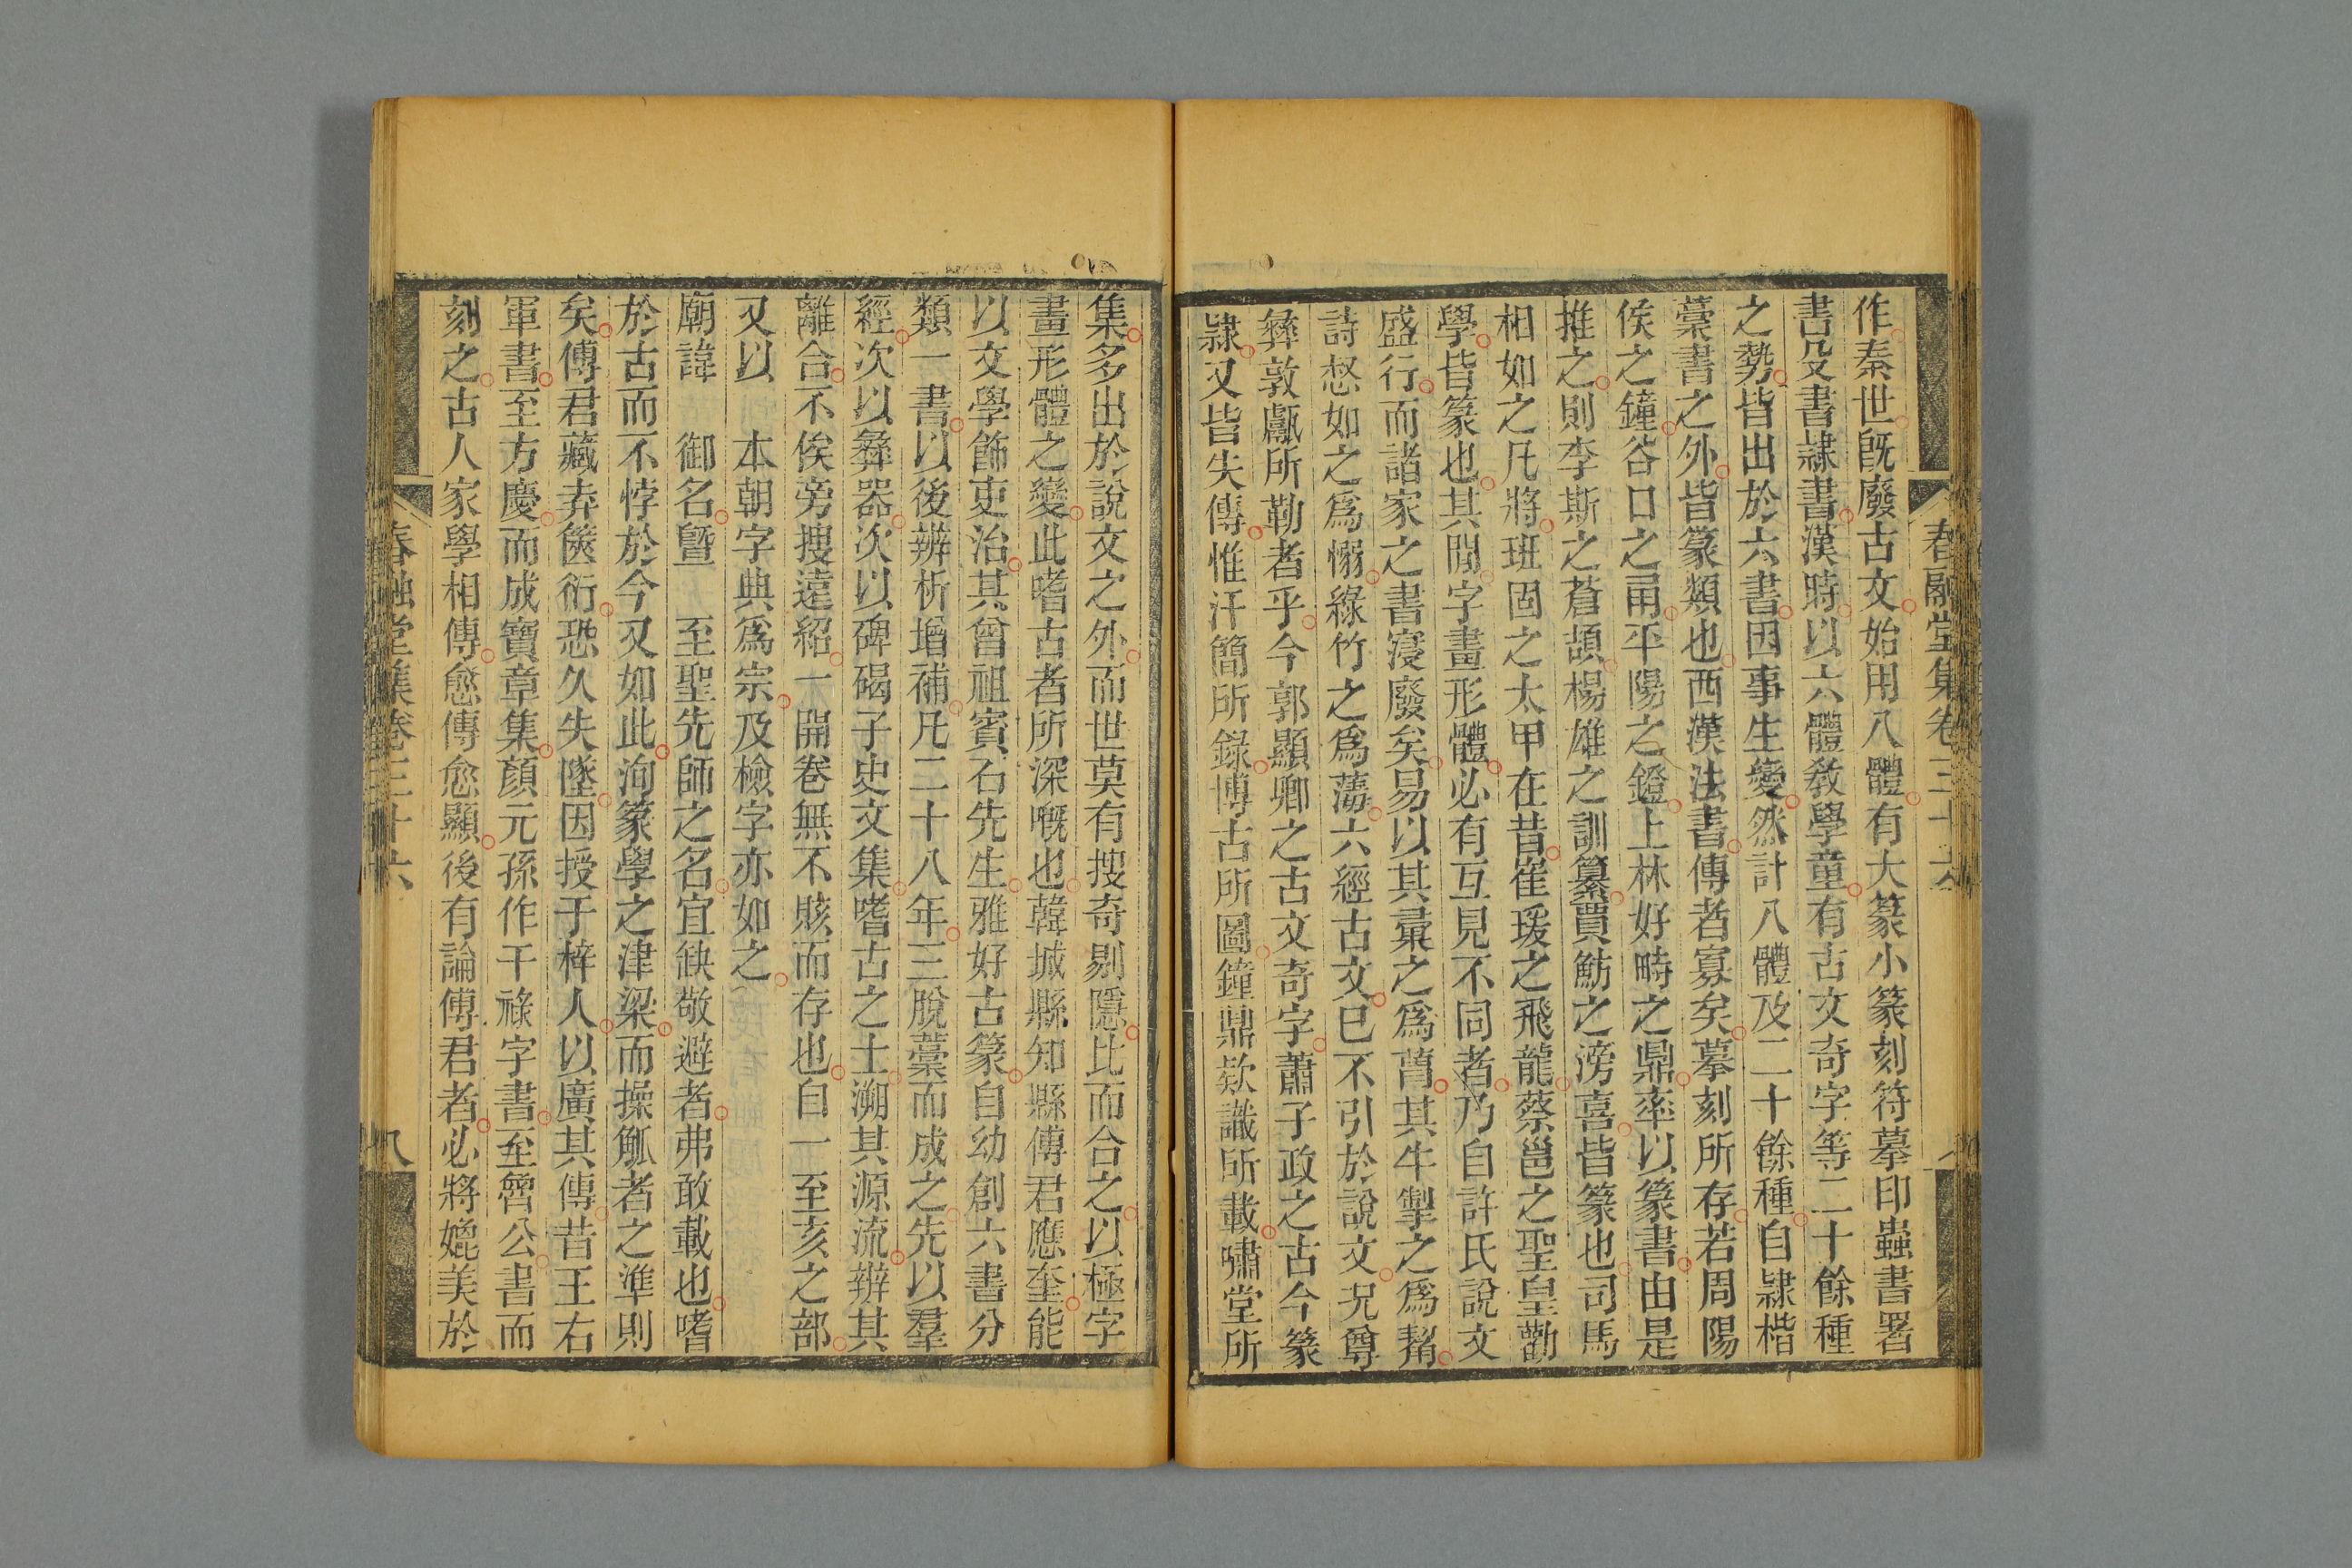 春融堂集卷三十六
作秦世既廢古文始用八體有大篆小篆刻符摹印蟲書署
書殳書隸書漢時以六體教學童有古文奇字等二十餘種
之勢皆出於六書因事生變然計八體及二十餘種自隸楷
藁書之外皆篆類也西漢法書傳者寡矣摹刻所存若周陽
侯之鐘谷口之甬平陽之鐙上林好畤之鼎率以篆書由是
推之則李斯之蒼頡楊雄之訓纂賈魴之滂喜皆篆也司馬
相如之凡將班固之太甲在昔崔瑗之飛龍蔡邕之聖皇勸
學皆篆也其間字畫形體必有互見不同者乃自許氏說文
盛行而諸家之書寖廢矣易以其彙之爲䔥其牛掣之爲觢
詩惄如之爲惄綠竹之爲薄六經古文已不引於說文況尊
彝敦甗所勒者乎今郭顯卿之古文奇字蕭子政之古今篆
隸又皆失傳惟汗簡所錄博古所圖鐘鼎欵識所載嘯堂所
集多出於說文之外而世莫有搜奇剔隱比而合之以極字
畫形體之變此嗜古者所深嘅也韓城縣知縣傅君應奎能
以文學飾吏治其曾祖賓石先生雅好古篆自幼創六書分
類一書以後辨析增補凡二十八年三脫藁而成之先以羣
經次以彝器次以碑碣子史文集嗜古之士溯其源流辨其
離合不俟旁搜遠紹一開卷無不賅而存也自一至亥之部
又以　本朝字典爲宗及檢字亦如之
廟諱　御名曁　至聖先師之名宜缺敬避者弗敢載也嗜
於古而不悖於今又如此洵篆學之津梁而操觚者之準則
矣傅君藏弆篋衍恐久失墜因授于梓人以廣其傳昔王右
軍書至方慶而成寶章集顏元孫作干祿字書至魯公書而
刻之古人家學相傳愈傳愈顯後有論傅君者必將媲美於
春融堂集卷三十六
八